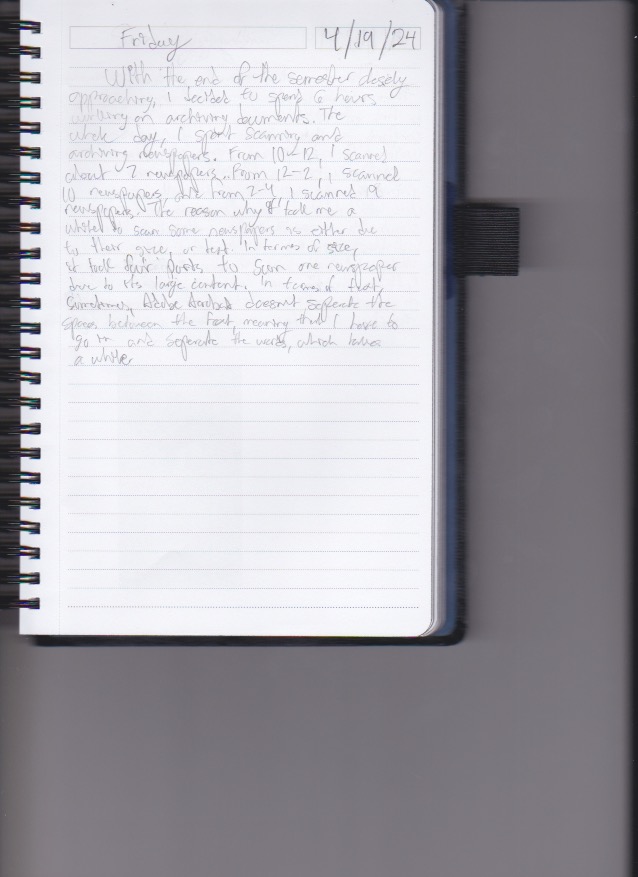 Friday 4/19/24
With the end of the semester closely
approaching, I decided to spend 6 hours
working on archiving documents. The
whole day, I spent scanning and
archiving newspapers. From 10-12, I scanned
about 7 newspapers. From 12-2, I scanned
10 newspapers, and from 2-4, I scanned 9
newspapers. The reason why it took me a
while to scan some newspapers is either due
to their size, or text. In termes of size,
it took four posts to scan one newspaper
due to its large content. In terms of text,
sometimes, Adobe Acrobat doesn't seperate the
spaces between the text, meaning that I have to
go in and seperate the words, which takes
a while